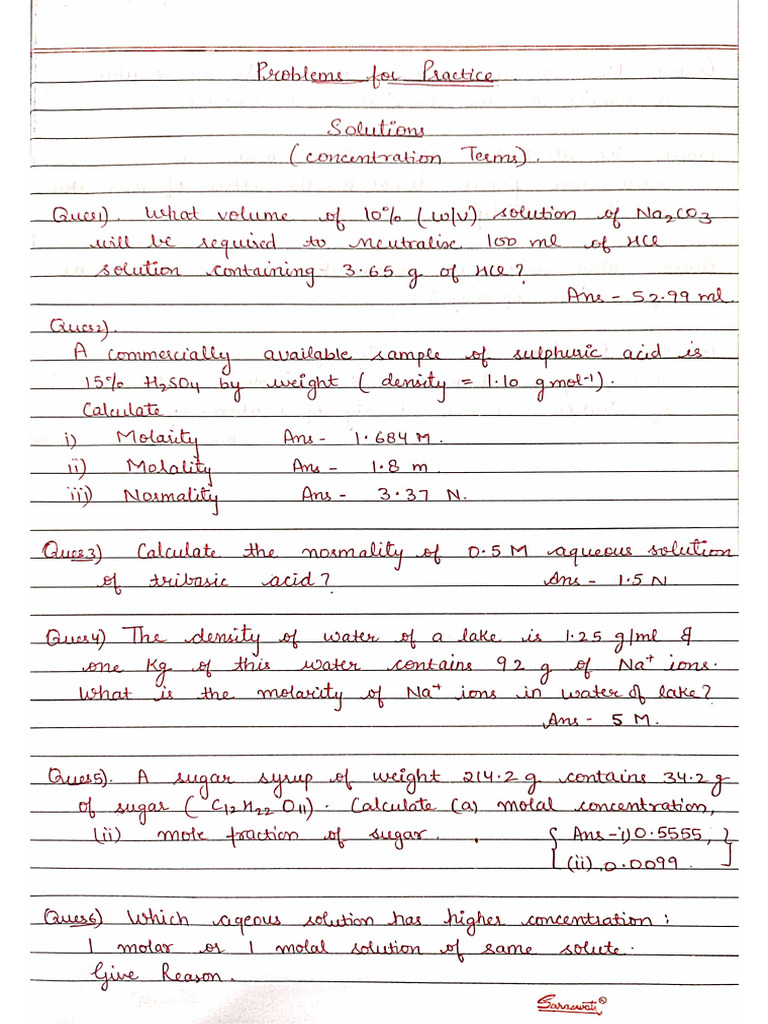 Problems for Practice
Solutions
(Concentration Terms).
Ques1). What volume of 10% (w/v) solution of Na2CO3
will be required to neutralise 100 ml of HCl
solution containing 3.65 g of HCl?
Ans - 52.99 ml.
Ques2).
A commercially available sample of sulphuric acid is
15% H2SO4 by weight (density = 1.10 g mol-1).
Calculate.
i) Molarity Ans - 1.684 M.
ii) Molality Ans - 1.8 m.
iii) Normality Ans - 3.37 N.
Ques3) Calculate the normality of 0.5 M aqueous solution
of tribasic acid? Ans - 1.5 N
Ques4) The density of water of a lake is 1.25 g/ml &
one Kg of this water contains 92 g of Na+ ions.
What is the molarity of Na+ ions in water of lake?
Ans - 5 M.
Ques5). A sugar syrup of weight 214.2 g contains 34.2 g
of sugar (C12H22O11). Calculate (a) molal concentration,
(ii) mole fraction of sugar. { Ans - i) 0.5555, }
[(ii) 0.0099. ]
Ques6) Which aqeous solution has higher concentration:
1 molar or 1 molal solution of same solute.
Give Reason.
Saraswati®